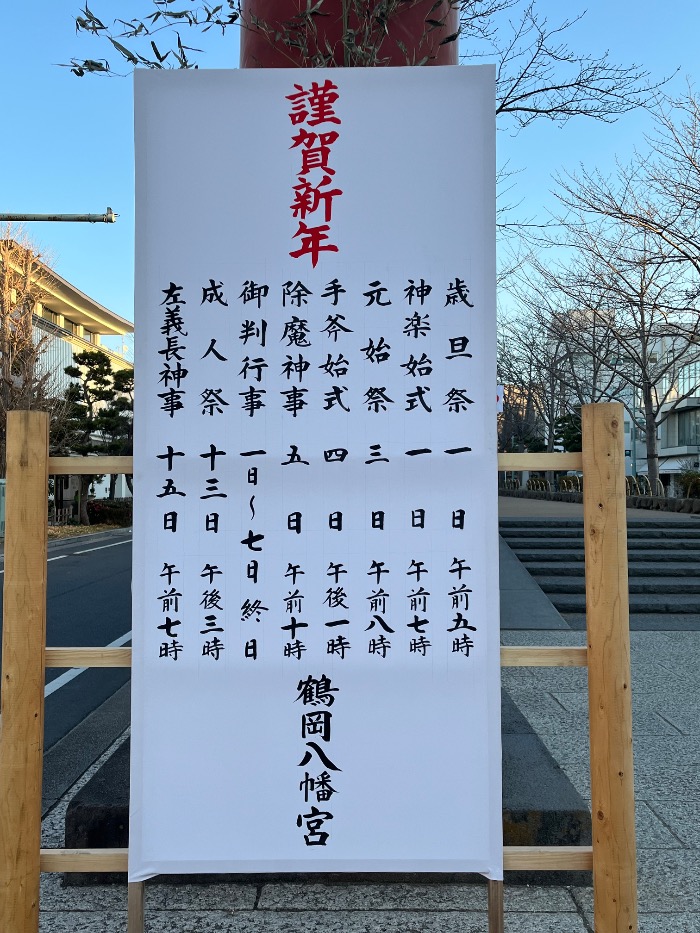 謹賀新年
歳旦祭 一日 午前五時
神楽始式 一日 午前七時
元始祭 三日 午前八時
手斧始式 四日 午後一時
除魔神事 五日 午前十時
御判行事 一日〜七日 終日
成人祭 十三日 午後三時
左義長神事 十五日 午前七時
鶴岡八幡宮